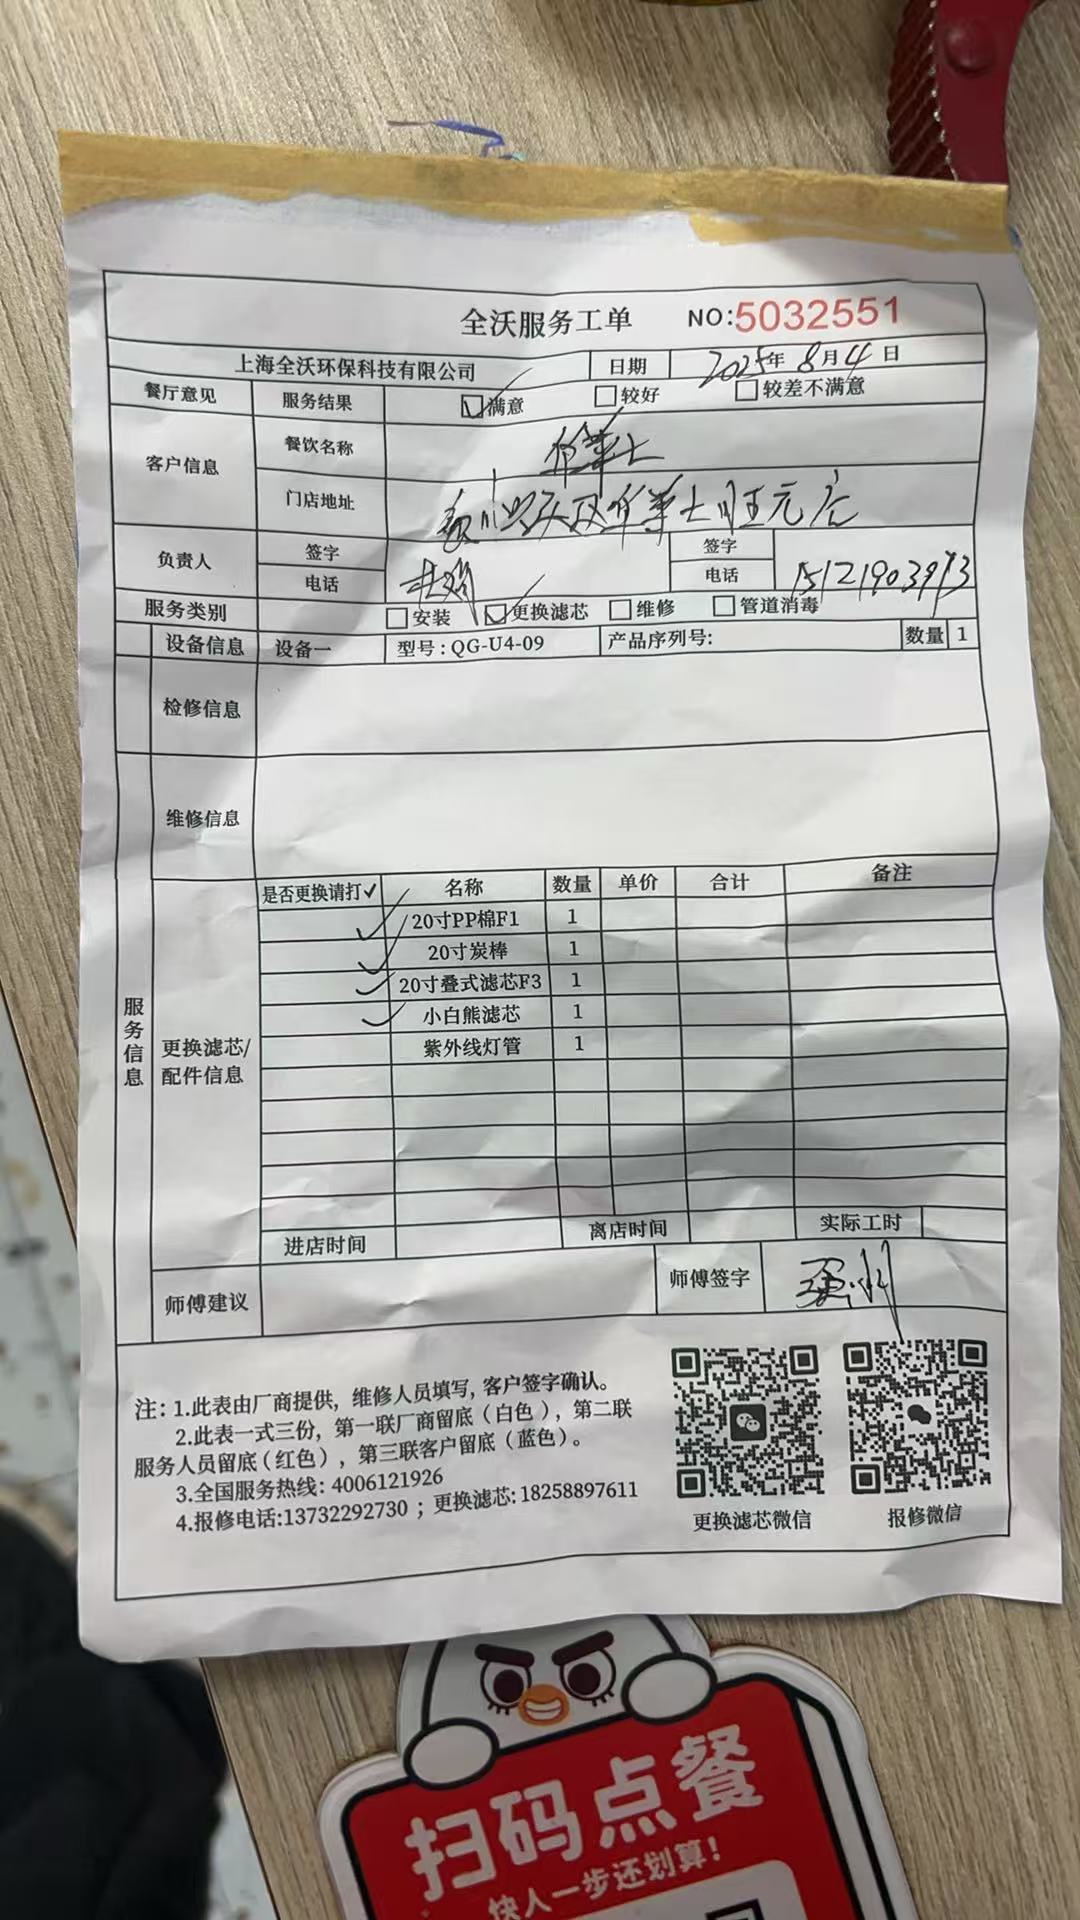 全沃服务工单 NO:5032551
上海全沃环保科技有限公司 日期 2025年8月4日
餐厅意见 服务结果 满意 较好 较差不满意
客户信息 餐饮名称 华莱士
门店地址 华莱士旺元店
负责人 签字 签字
电话 电话 15121903993
服务类别 安装 更换滤芯 维修 管道消毒
设备信息 设备一 型号:QG-U4-09 产品序列号: 数量 1
检修信息
维修信息
服务信息
更换滤芯/配件信息
是否更换请打✓ 名称 数量 单价 合计 备注
✓ 20寸PP棉F1 1
✓ 20寸炭棒 1
✓ 20寸叠式滤芯F3 1
✓ 小白熊滤芯 1
紫外线灯管 1
进店时间 离店时间 实际工时
师傅建议 师傅签字
注:1.此表由厂商提供,维修人员填写,客户签字确认。
2.此表一式三份,第一联厂商留底(白色),第二联
服务人员留底(红色),第三联客户留底(蓝色)。
3.全国服务热线:4006121926
4.报修电话:13732292730 ;更换滤芯:18258897611
更换滤芯微信 报修微信
扫码点餐
快人一步还划算!